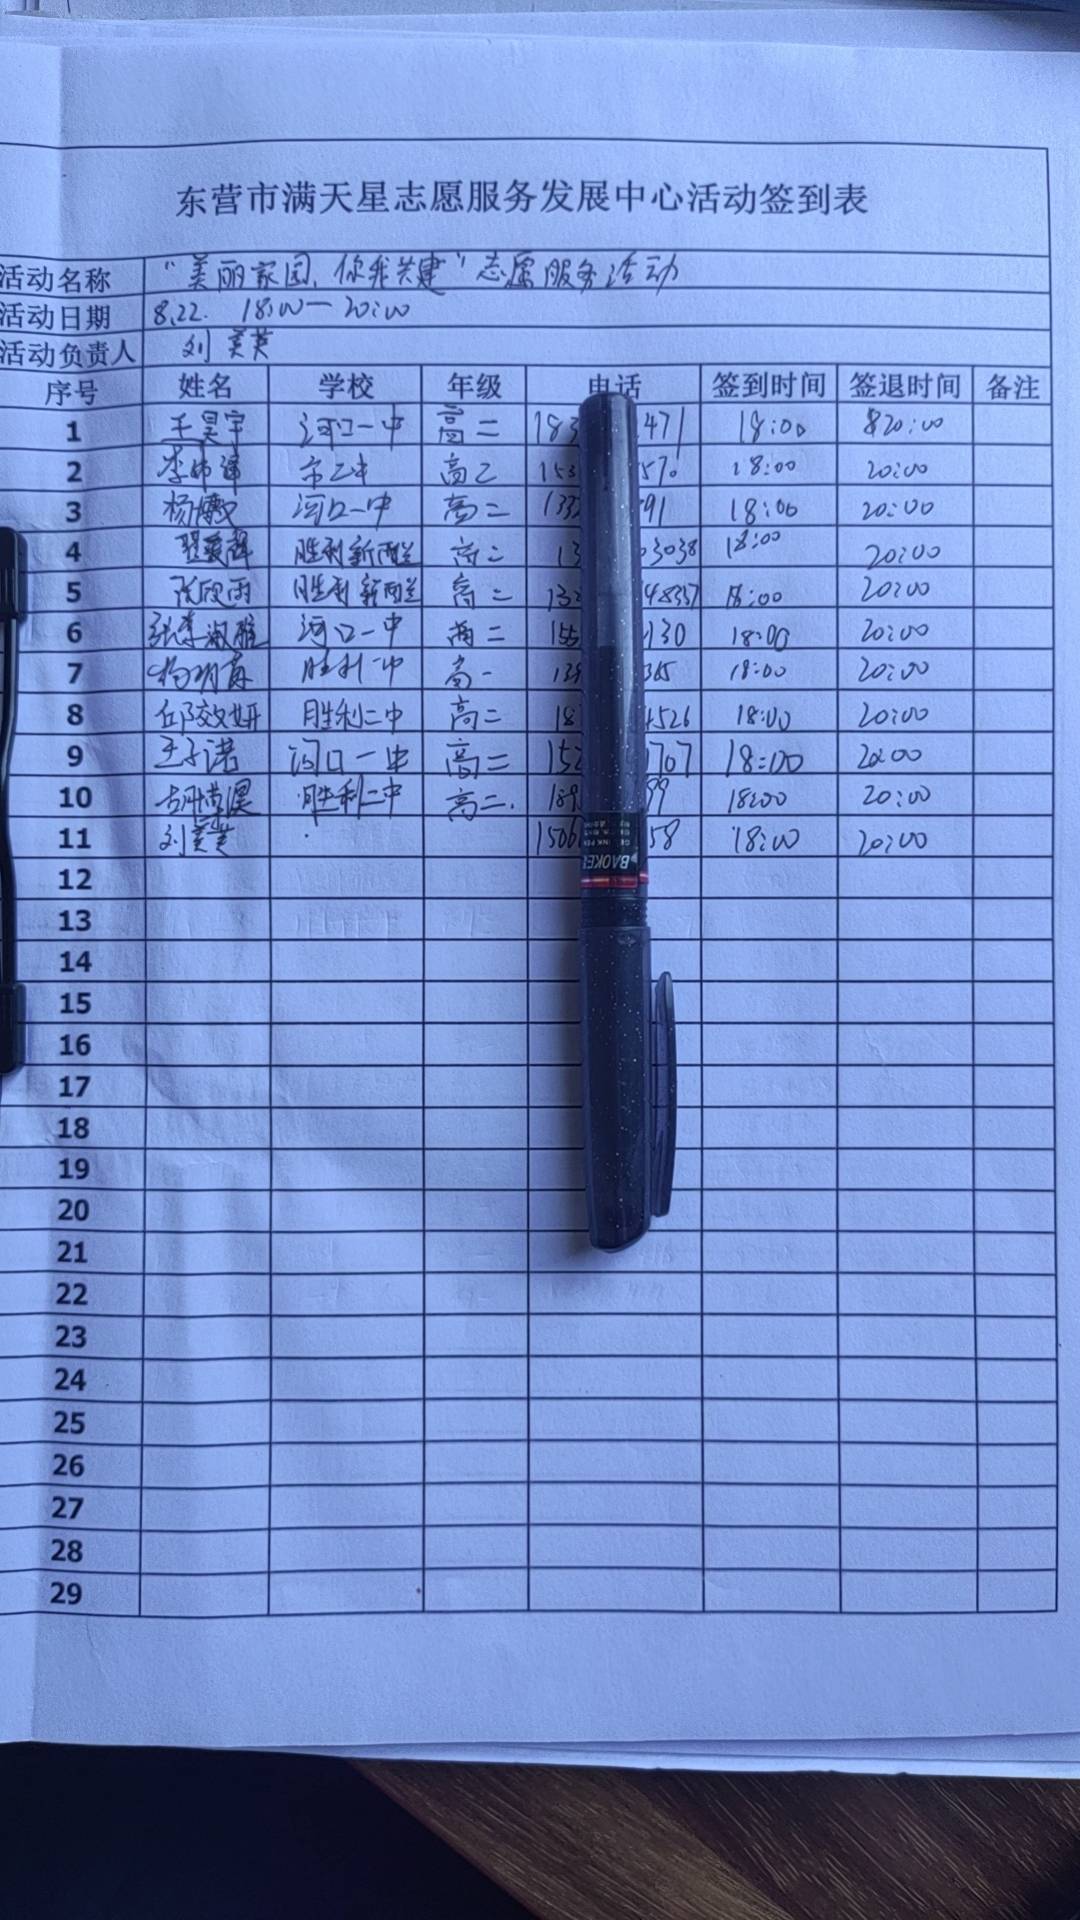 东营市满天星志愿服务发展中心活动签到表
活动名称 "美丽家园,你我共建"志愿服务活动
活动日期 8.22. 18:00—20:00
活动负责人 刘美英
序号 姓名 学校 年级 电话 签到时间 签退时间 备注
1 王昊宇 河口一中 高二 183 471 18:00 20:00
2 高二 153 570 18:00 20:00
3 河口一中 高二 133 91 18:00 20:00
4 胜利新西兰 高二 13 3038 18:00 20:00
5 胜利新西兰 高二 13 48357 18:00 20:00
6 河口一中 高二 155 130 18:00 20:00
7 胜利一中 高一 139 365 18:00 20:00
8 邱效妍 胜利二中 高二 18 4526 18:00 20:00
9 王子诺 河口一中 高二 152 707 18:00 20:00
10 胜利二中 高二. 189 99 18:00 20:00
11 刘美英 1506 58 18:00 20:00
12
13
14
15
16
17
18
19
20
21
22
23
24
25
26
27
28
29
BAOKE